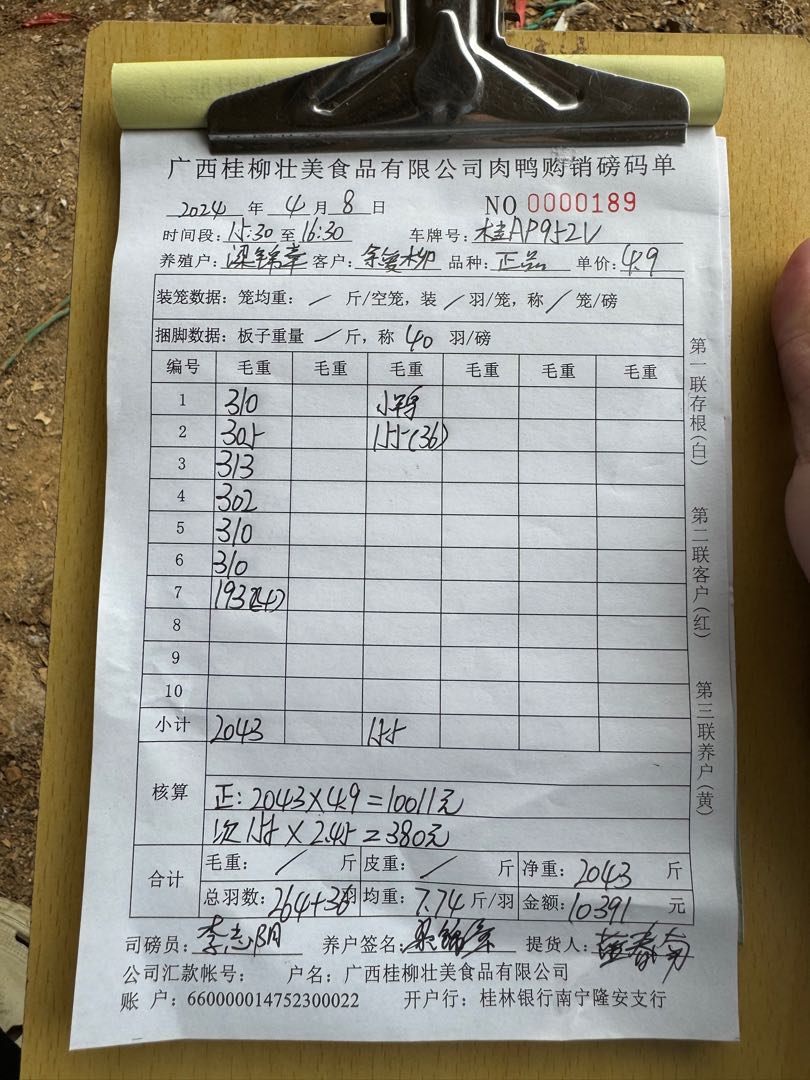 广西桂柳壮美食品有限公司肉鸭购销磅码单
2024 年 4 月 8 日 NO 0000189
时间段: 15:30 至 16:30 车牌号: 桂AP952V
养殖户: 梁锦 客户: 柳 品种: 正品 单价: 4.9
装笼数据: 笼均重: / 斤/空笼, 装 / 羽/笼, 称 / 笼/磅
捆脚数据: 板子重量 / 斤, 称 40 羽/磅
编号 毛重 毛重 毛重 毛重 毛重 毛重
1 310
2 305 155(36)
3 313
4 302
5 310
6 310
7 193(24)
8
9
10
小计 2043 155
核算
正: 2043×4.9=10011元
次 155×2.45=380元
合计 毛重: / 斤 皮重: / 斤 净重: 2043 斤
总羽数: 264+36羽 均重: 7.74 斤/羽 金额: 10391 元
司磅员: 李志阴 养户签名: 梁锦 提货人:
公司汇款帐号: 户名: 广西桂柳壮美食品有限公司
账 户: 660000014752300022 开户行: 桂林银行南宁隆安支行
第一联存根(白)
第二联客户(红)
第三联养户(黄)